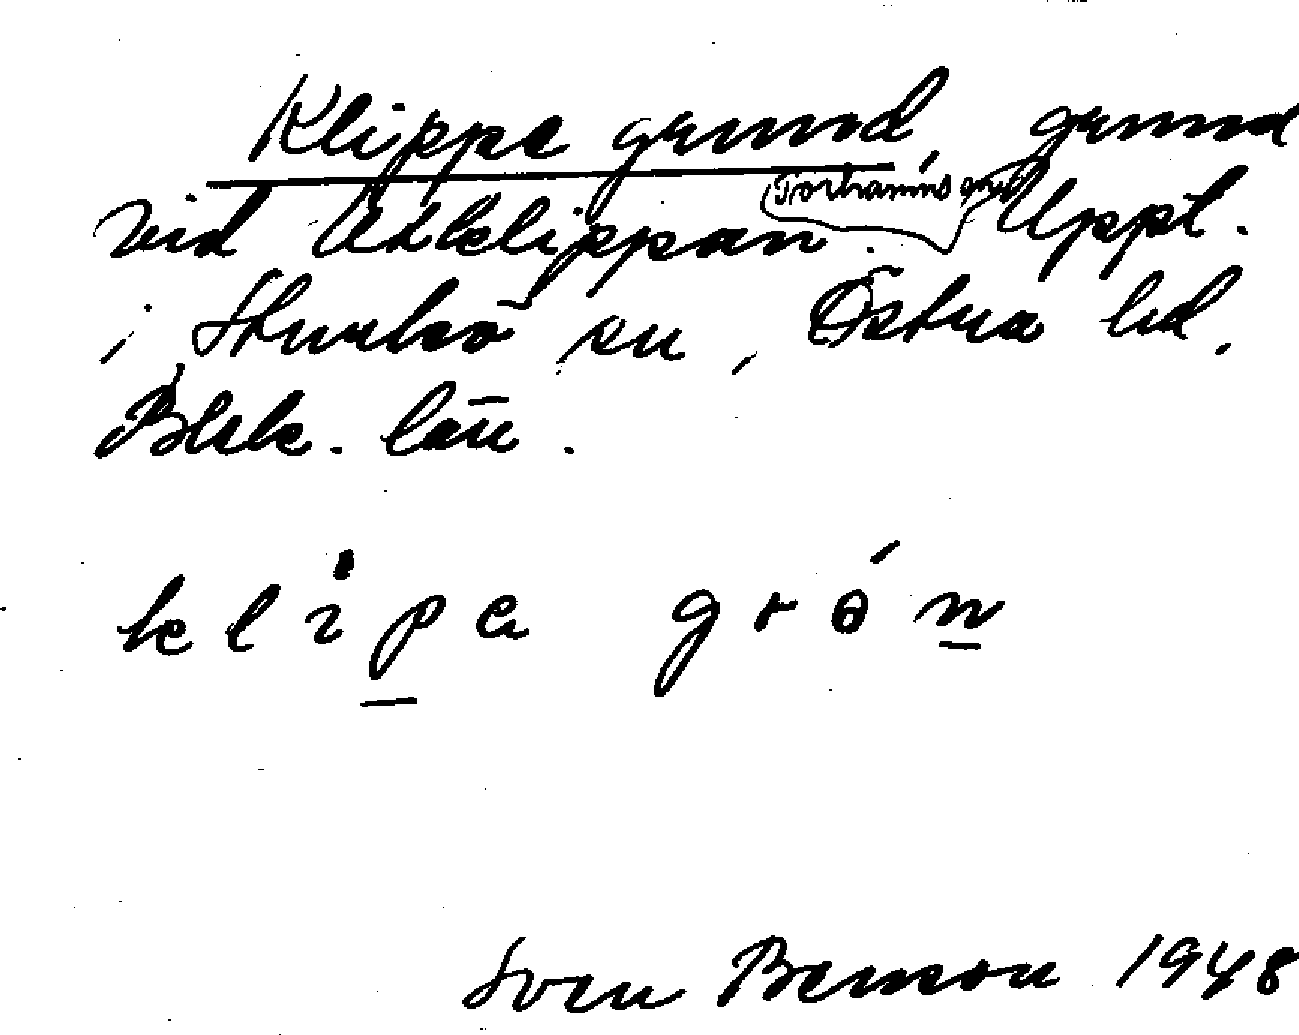 Klippe grund, grund
vid Utklippan. Uppt.
i Sturkö sn, Östra hd,
Blek. län.
klipa grön
Sven Benson 1948